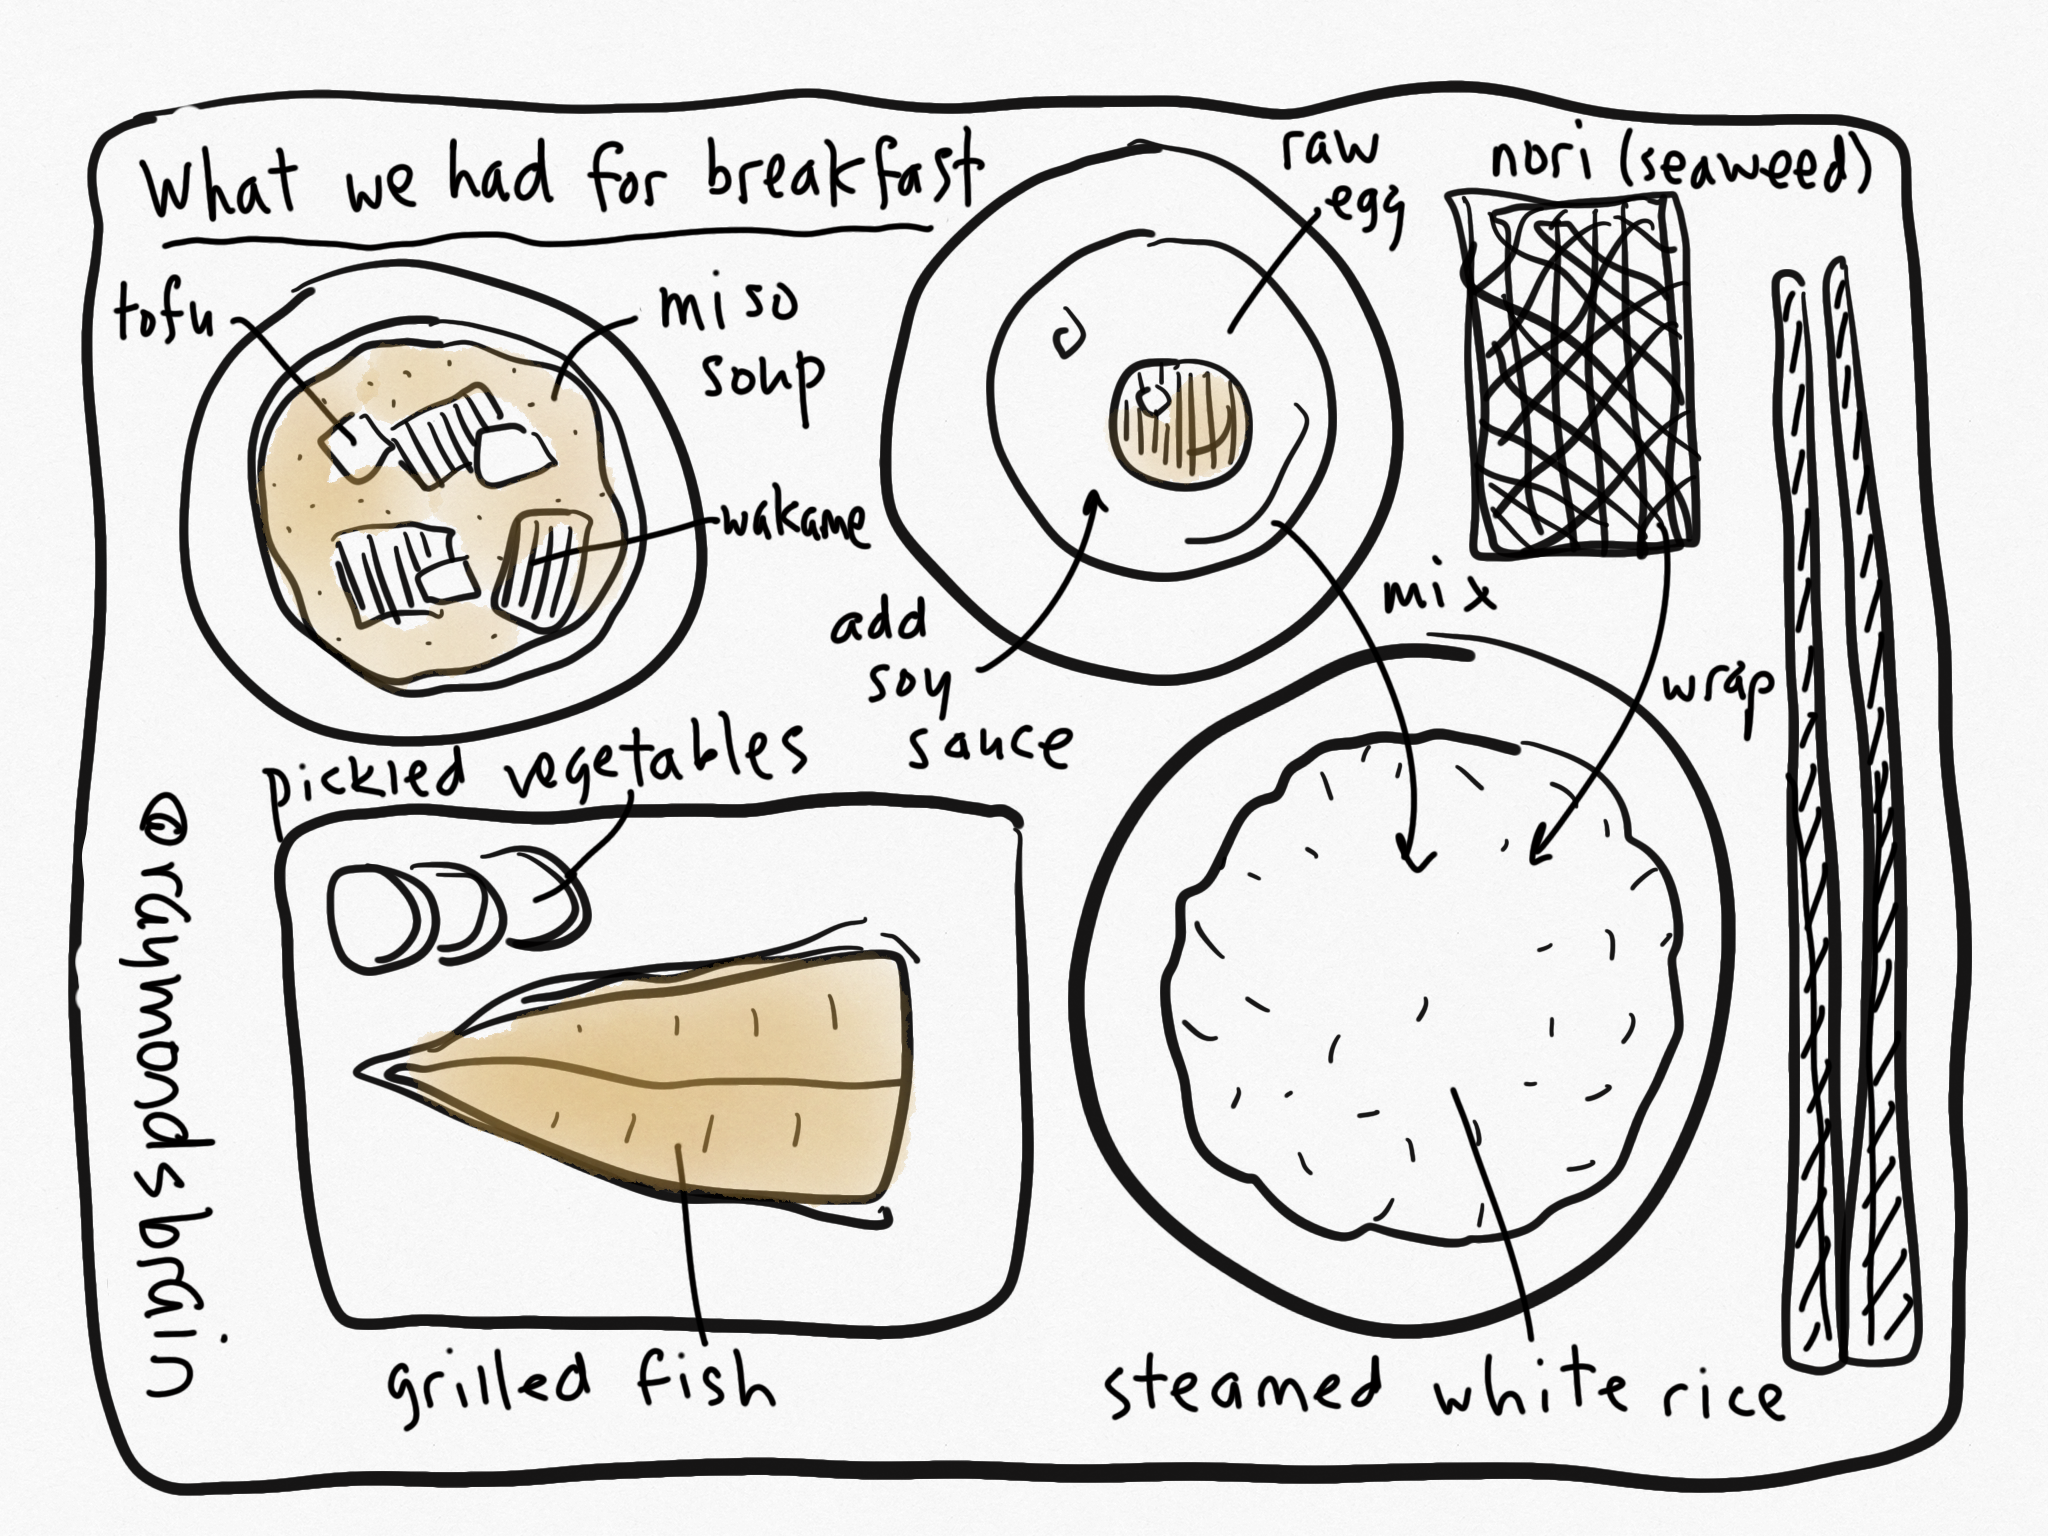 What we had for breakfast
tofu
miso
soup
wakame
raw
egg
nori (seaweed)
add
soy
sauce
mix
wrap
pickled vegetables
grilled fish
steamed white rice
@raymondsbrain